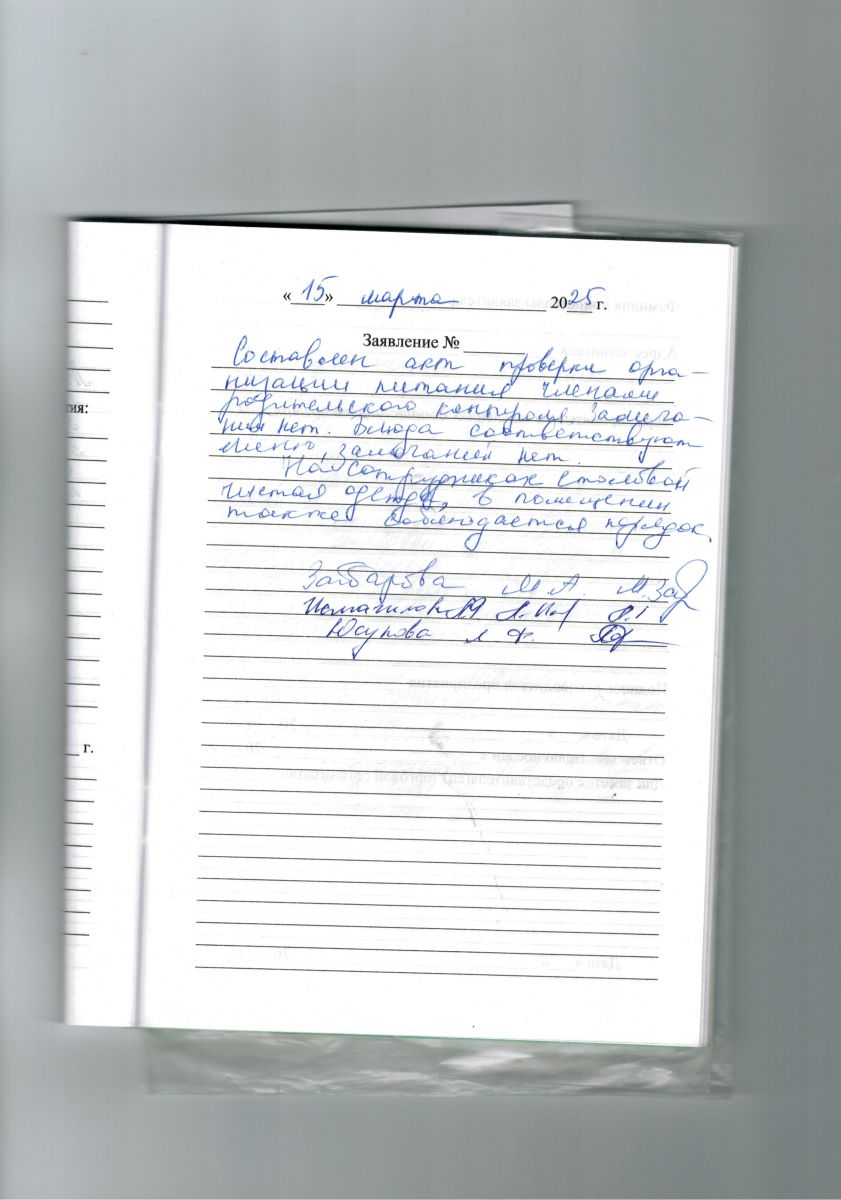 «15» марта 2025 г.
Заявление №
Составлен акт проверки орга-
низации питания членами
родительского контроля Замеча-
ний нет. Блюда соответствуют
меню, замечаний нет.
На сотрудниках столовой
чистая одежда, в помещении
также соблюдается порядок.
М. А. М. За
Юсупова
тия:
г.